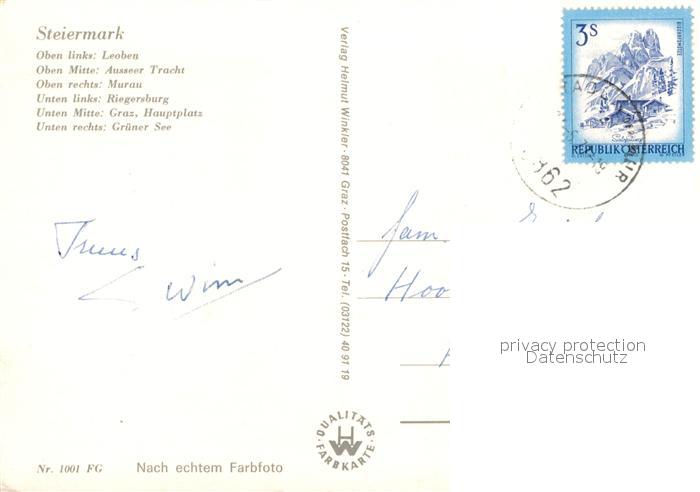 Steiermark
Oben links: Leoben
Oben Mitte: Ausseer Tracht
Oben rechts: Murau
Unten links: Riegersburg
Unten Mitte: Graz, Hauptplatz
Unten rechts: Grüner See
Verlag Helmut Winkler · 8041 Graz · Postfach 15 · Tel. (03122) 40 91 19
3S
REPUBLIK ÖSTERREICH
Truus
Wim
Fam.
Hoo
privacy protection
Datenschutz
QUALITÄTS
FARBKARTE
Nr. 1001 FG
Nach echtem Farbfoto